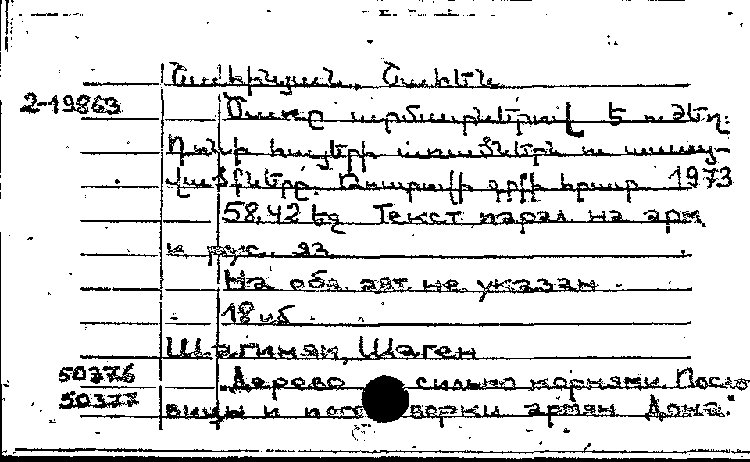 Շահինյան, Շահեն
2-19863 Ծառը արմատներով է ուժեղ:
Դոնի հայերի առածներն ու ասաց-
վածքները. Ռոստովի գրքի հրատ. 1973
58, 42 էջ Текст парал на арм
и рус. яз
На обл авт не указан
18 иб
Шагинян, Шаген
50376 "Дерево сильно корнями. Посло
50377 вицы и поговорки армян Дона."